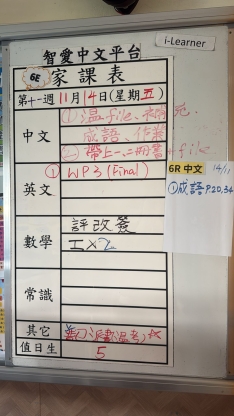 i-Learner
智愛中文平台
6E 家課表
第十一週 11月14日(星期五)
中文
① 温file、補充
成語、作業
② 帶上一、二冊書+file
英文
① WP3 (Final)
6R 中文 14/11
① 成語 P.20,34
數學
評改簽
工
常識
其它
值日生
5